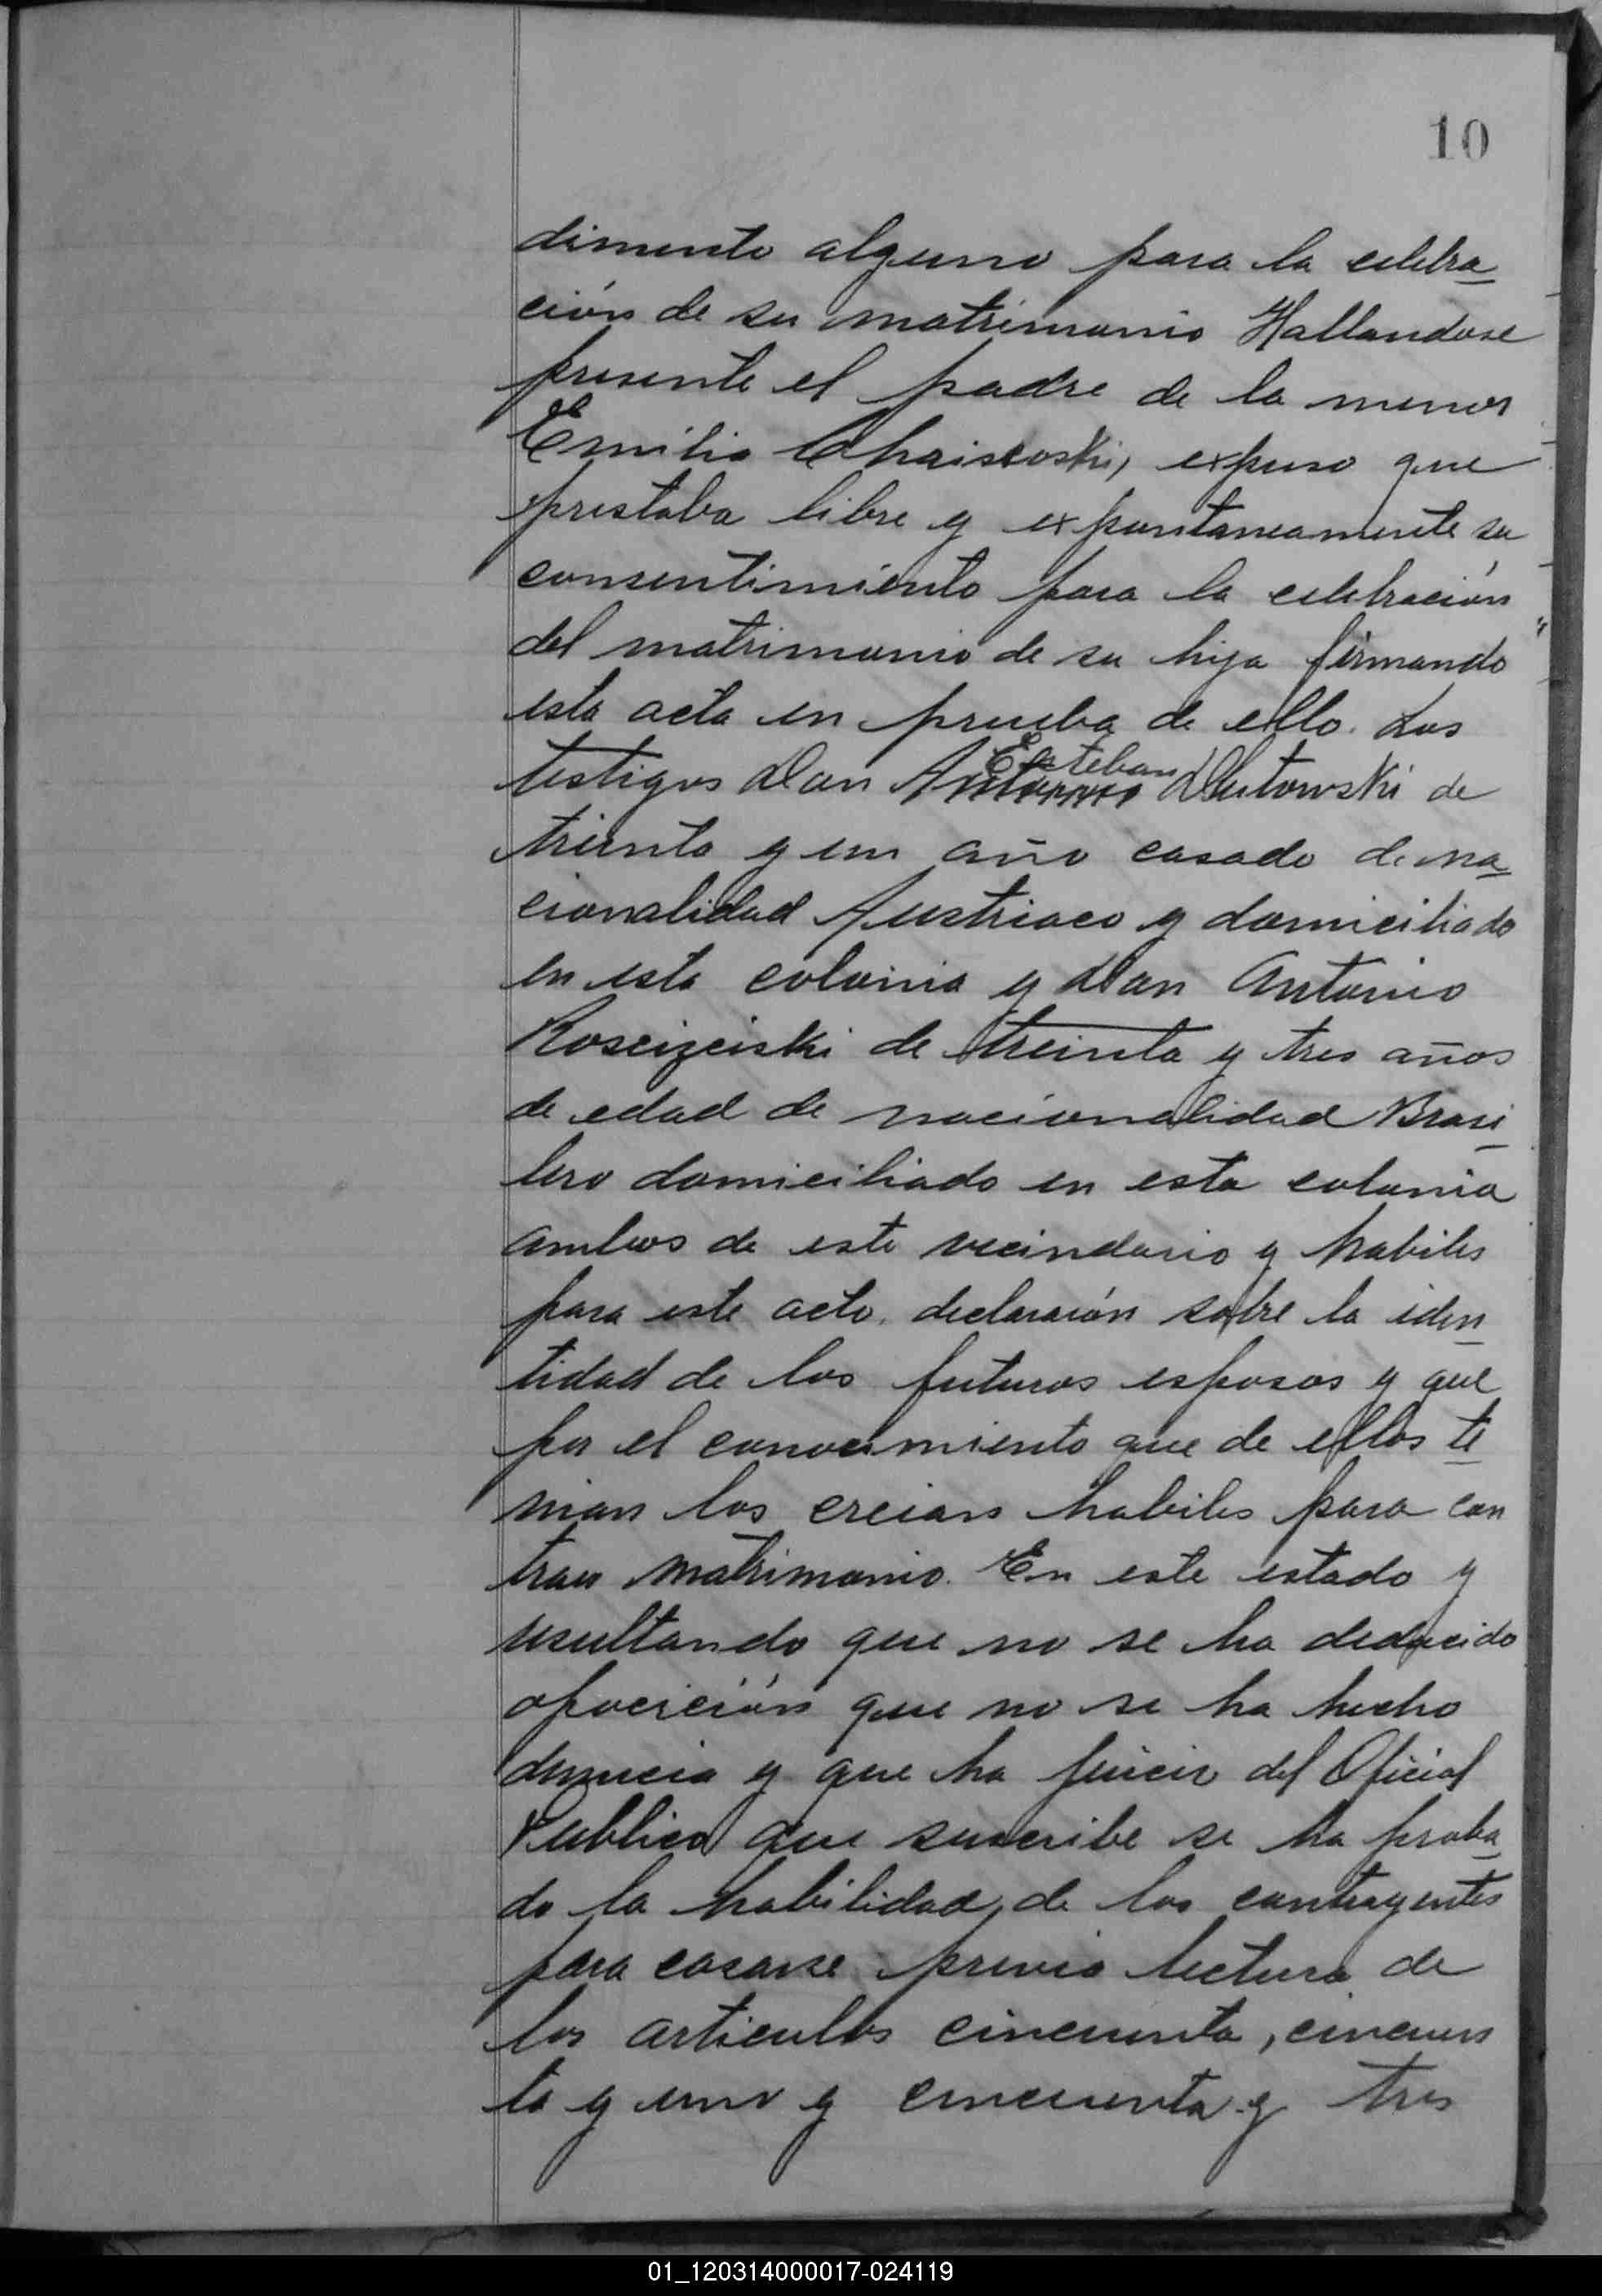 10
dimento alguno para la celebra
ción de su matrimonio Hallandose
presente el padre de la menor
Emilio Chaiscoski, expuso que
prestaba libre y expontaneamente su
consentimiento para la celebración
del matrimonio de su hija firmando
esta acta en prueba de ello. Los
Esteban
testigos Don Antonio Dlutowski de
treinta y un año casado de na
cionalidad Austriaco y domiciliado
en esta colonia y Don Antonio
Roscizeiski de treinta y tres años
de edad de nacionalidad Brasi
lero domiciliado en esta colonia
ambos de este vecindario y habiles
para este acto, declararón sobre la iden
tidad de los futuros esposos y que
por el conocimiento que de ellos te
nian los creian habiles para con
traer matrimonio. En este estado y
resultando que no se ha deducido
oposición que no se ha hecho
denuncia y que ha juicio del Oficial
Publico que suscribe se ha proba
do la habilidad de los contrayentes
para casarse previa lectura de
los articulos cincuenta, cincuen
ta y uno y cincuenta y tres
01_120314000017-024119